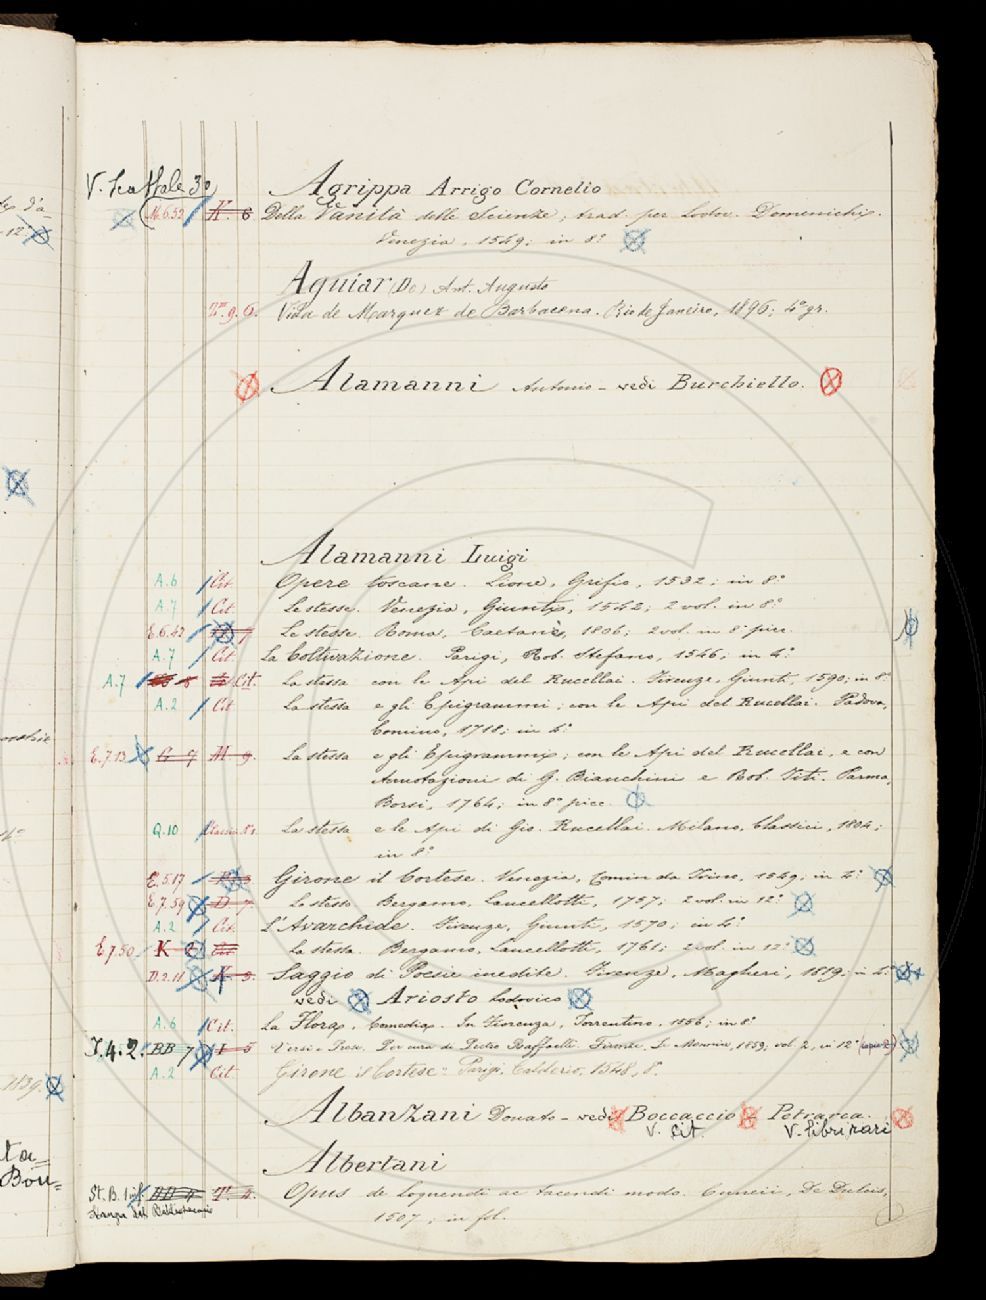 V. Scaffale 30
Agrippa Arrigo Cornelio
M.6.52 K 6 Della Vanità delle Scienze, trad. per Lodov. Domenichi.
Venezia, 1549; in 8°
Aguiar (De) Ant. Augusto
9. 6. Vida de Marquez de Barbacena. Rio de Janeiro, 1896; 4° gr.
Alamanni Antonio - vedi Burchiello.
Alamanni Luigi
A.6 Cit. Opere toscane. Lione, Grifio, 1532; in 8°
A.7 Cit Le stesse. Venezia, Giunti, 1542; 2 vol. in 8°
E.6.47 7 Le stesse. Roma, Caetani, 1806; 2 vol. in 8° picc.
A.7 Cit. La Coltivazione. Parigi, Rob. Stefano, 1546; in 4°
A.7 Cit. La stessa con le Api del Rucellai. Firenze, Giunti, 1590; in 8°
A.2 Cit La stessa e gli Epigrammi; con le Api del Rucellai. Padova,
Comino, 1718; in 4°
E.7.13 G 7 M 9. La stessa e gli Epigrammi; con le Api del Rucellai, e con
Annotazioni di G. Bianchini e Rob. Titi. Parma,
Borsi, 1764; in 8° picc.
Q.10 La stessa e le Api di Gio. Rucellai. Milano, Classici, 1804;
in 8°
E.5.17 Girone il Cortese. Venezia, Comin da Trino, 1549; in 4°
E.7.59 D 7 Lo stesso Bergamo, Lancellotti, 1757; 2 vol. in 12°
A.2 Cit. L'Avarchide. Firenze, Giunti, 1570; in 4°
E.7.50 K La stessa. Bergamo, Lancellotti, 1761; 2 vol. in 12°
D.2.11 Saggio di Poesie inedite. Firenze, Magheri, 1819; in 4°
vedi Ariosto Lodovico
A.6 Cit. La Flora, Comedia. In Fiorenza, Torrentino, 1556; in 8°
I.4.2. BB 7 I 5 Versi e Prose, Per cura di Pietro Raffaelli. Firenze, Le Monnier, 1859; vol. 2, in 12° (copie 2)
A.2 Cit Girone il Cortese: Parigi, Calderio, 1548, 8°.
Albanzani Donato - vedi Boccaccio Petrarca.
V. Cit. V. libri rari
Albertani
St. B. inf. 4. Opus de loquendi ac tacendi modo. Cuneii, De Dulcis,
Stanza del Bibliotecario
1507; in fol.